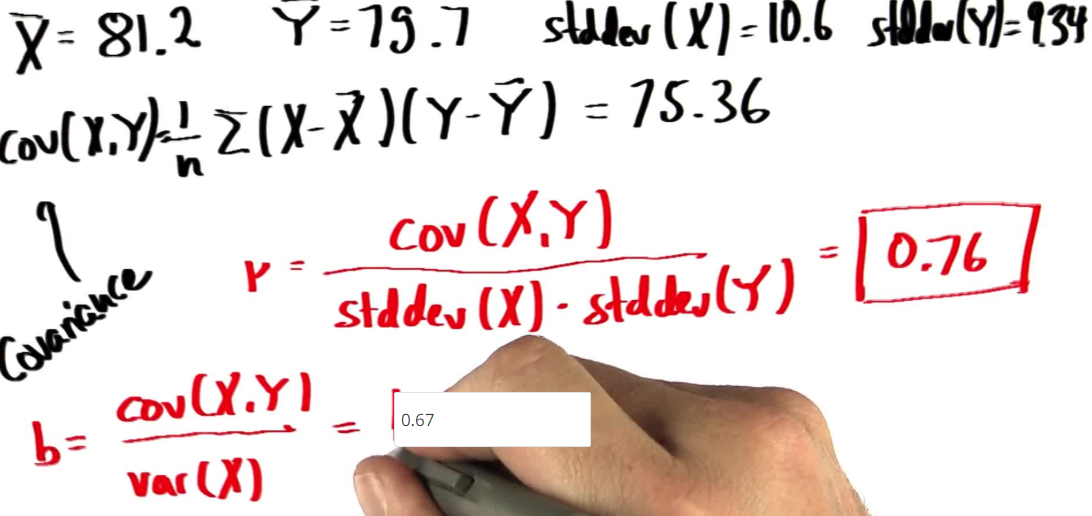 X̄ = 81.2 Ȳ = 79.7 stddev (X) = 10.6 stddev(Y) = 9.34
cov(X,Y) = 1/n Σ(X-X̄)(Y-Ȳ) = 75.36
Covariance
r = cov(X,Y) / stddev(X) · stddev(Y) = 0.76
b = cov(X,Y) / var(X) = 0.67